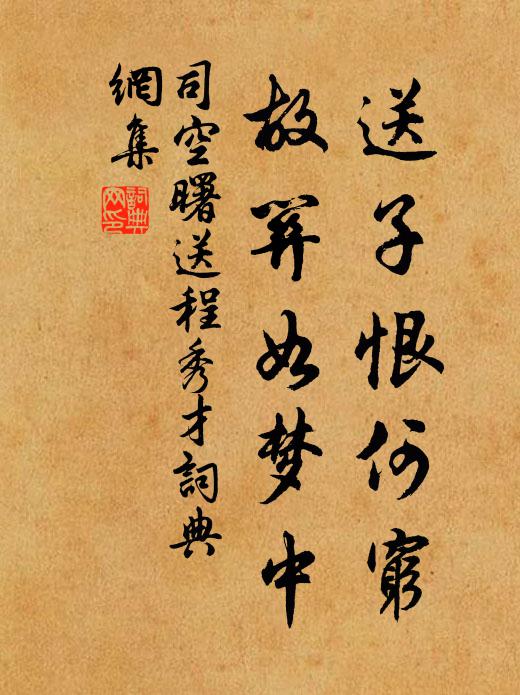 送子恨何窮
故關如梦中
司空曙送程秀才詞典
網集
詞典
网印